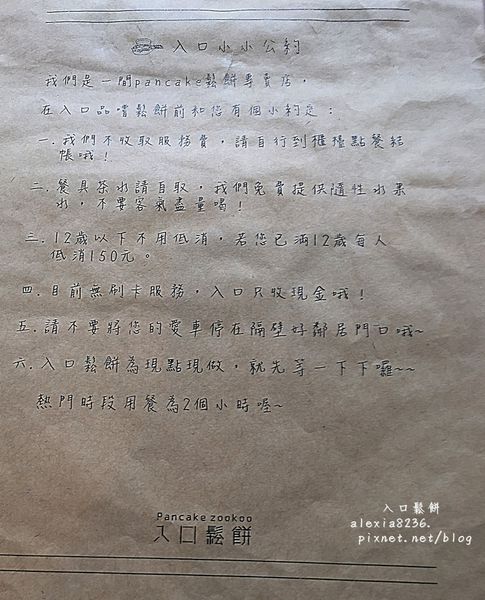 入口小小公約
我們是一間pancake鬆餅專賣店，
在入口品嚐鬆餅前和您有個小約定：
一. 我們不收取服務費，請自行到櫃檯點餐結
帳哦！
二. 餐具茶水請自取，我們免費提供隨性水果
水，不要客氣盡量喝！
三. 12歲以下不用低消，若您已滿12歲每人
低消150元。
四. 目前無刷卡服務，入口只收現金哦！
五. 請不要將您的愛車停在隔壁好鄰居門口哦~
六. 入口鬆餅為現點現做，就先等一下下囉~~
熱門時段用餐為2個小時喔~
Pancake zookoo
入口鬆餅
入口鬆餅
alexia8236.
pixnet.net/blog